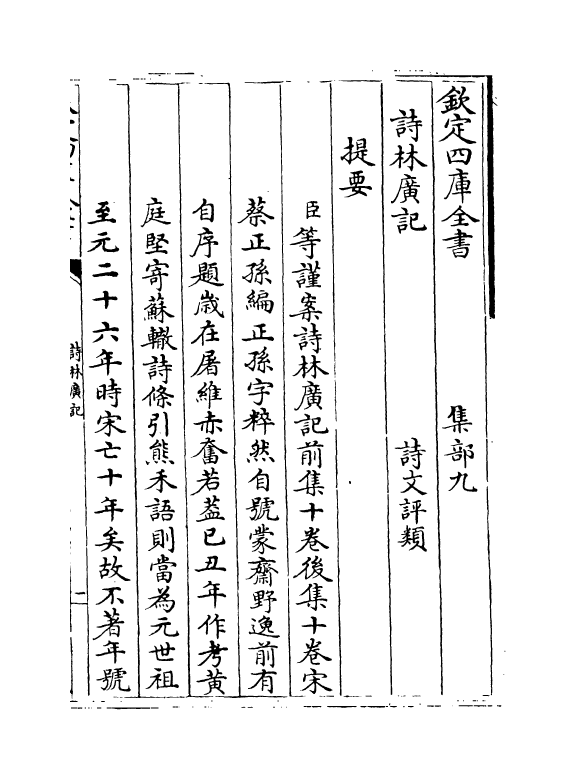 欽定四庫全書　　　　集部九
詩林廣記　　　　詩文評類
提要
臣等謹案詩林廣記前集十卷後集十卷宋
蔡正孫編正孫字粹然自號蒙齋野逸前有
自序題歲在屠維赤奮若葢已丑年作考黃
庭堅寄蘇轍詩條引熊禾語則當為元世祖
至元二十六年時宋亡十年矣故不著年號
詩林廣記
一